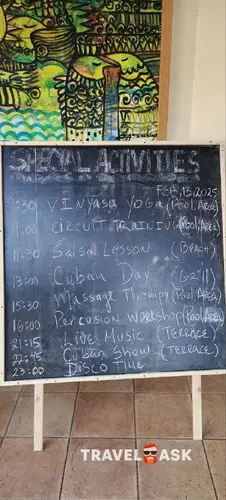 SPECIAL ACTIVITIES
FEB, 13, 2025
9:30 VINYASA YOGA (Pool AREA)
11:00 CIRCUIT TRAINING (Pool AREA)
11:30 Salsa Lesson (BEACH)
13:00 Cuban Day
15:30 Massage Therapy (Pool AREA)
16:00 Percusion Workshop (Pool AREA)
21:15 LIVE MUSIC (TERRACE)
22:45 Cuban Show (TERRACE)
23:00 DISCO TIME
TRAVEL ASK